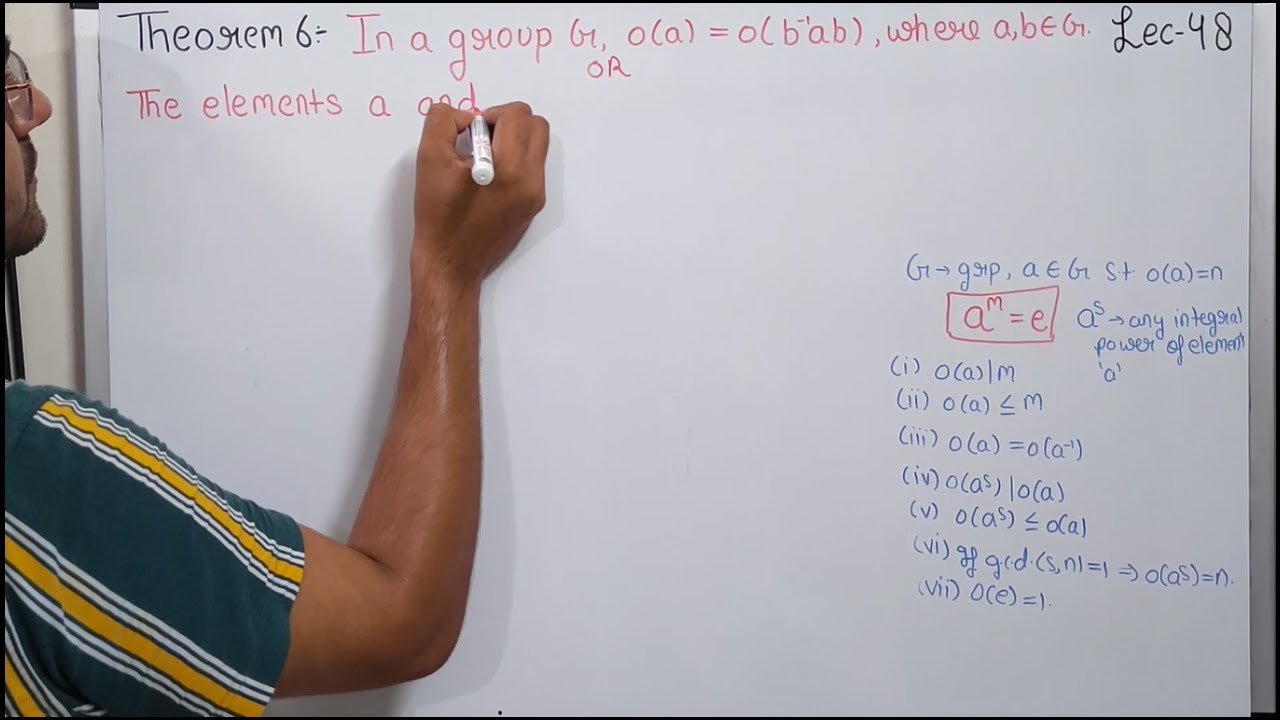 Theorem 6:- In a group G, o(a) = o(b⁻¹ab), where a,b∈G. Lec-48
OR
The elements a and
G→grp, a∈G st o(a)=n
aᵐ = e
aˢ → any integral
power of element
'a'
(i) o(a)|m
(ii) o(a) ≤ m
(iii) o(a) = o(a⁻¹)
(iv) o(aˢ) | o(a)
(v) o(aˢ) ≤ o(a)
(vi) If g.c.d.(s,n)=1 ⇒ o(aˢ)=n.
(vii) o(e)=1.